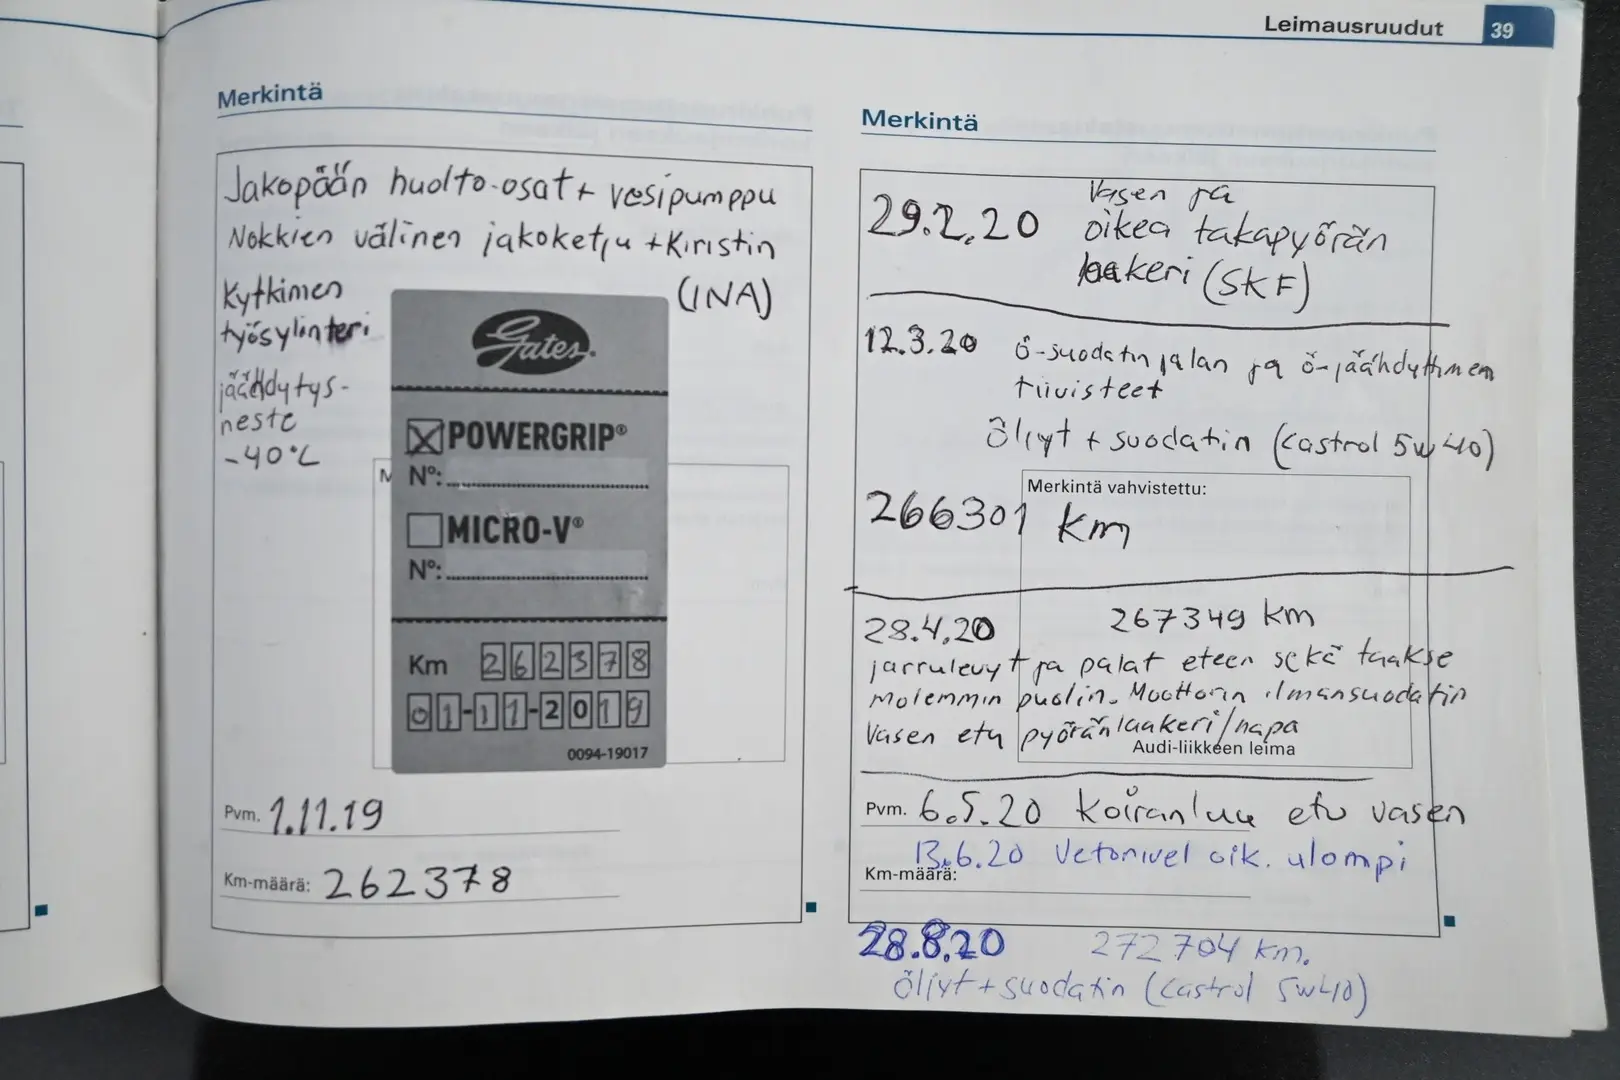 Leimausruudut 39
Merkintä
Jakopään huolto-osat + vesipumppu
Nokkien välinen jakoketju + Kiristin
(INA)
Kytkimen
työsylinteri
jäähdytys-
neste
-40°C
Gates
POWERGRIP®
N°:
MICRO-V®
N°:
Km 262378
01-11-2019
0094-19017
M
Pvm. 1.11.19
Km-määrä: 262378
Merkintä
29.2.20 Vasen ja
oikea takapyörän
laakeri (SKF)
12.3.20 ö-suodatin jalan ja ö-jäähdyttimen
tiivisteet
Öljyt + suodatin (Castrol 5W40)
Merkintä vahvistettu:
266301 km
28.4.20 267349 km
jarrulevyt ja palat eteen sekä taakse
molemmin puolin. Moottorin ilmansuodatin
Vasen etu pyöränlaakeri/napa
Audi-liikkeen leima
Pvm. 6.5.20 Koiranluu etu vasen
13.6.20 Vetonivel oik. ulompi
Km-määrä:
28.8.20 272704 km.
Öljyt + suodatin (Castrol 5W40)